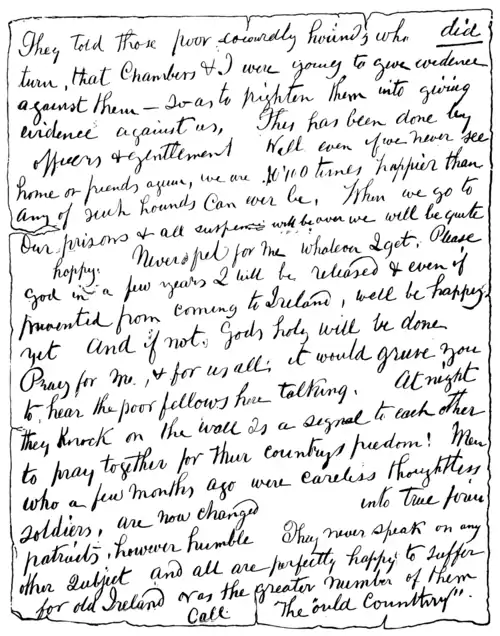 They told those poor cowardly hounds who did
turn, that Chambers & I were going to give evidence
against them — so as to frighten them into giving
evidence against us, This has been done by
officers & gentlemen! Well even if we never see
home or friends again, we are 10'110 times happier than
any of such hounds can ever be. When we go to
our prisons & all suspense will be over we will be quite
happy. Never fret for me whatever I get. Please
God in a few years I will be released & even if
prevented from coming to Ireland, well be happy
yet And if not, Gods holy will be done
Pray for me, & for us all; it would grieve you
to hear the poor fellows here talking. At night
they knock on the wall as a signal to each other
to pray together for their countrys freedom! Men
who a few months ago were careless thoughtless
soldiers, are now changed into true firm
patriots, however humble They never speak on any
other subject and all are perfectly happy to suffer
for old Ireland or as the greater number of them
Call The "ould Counttry".